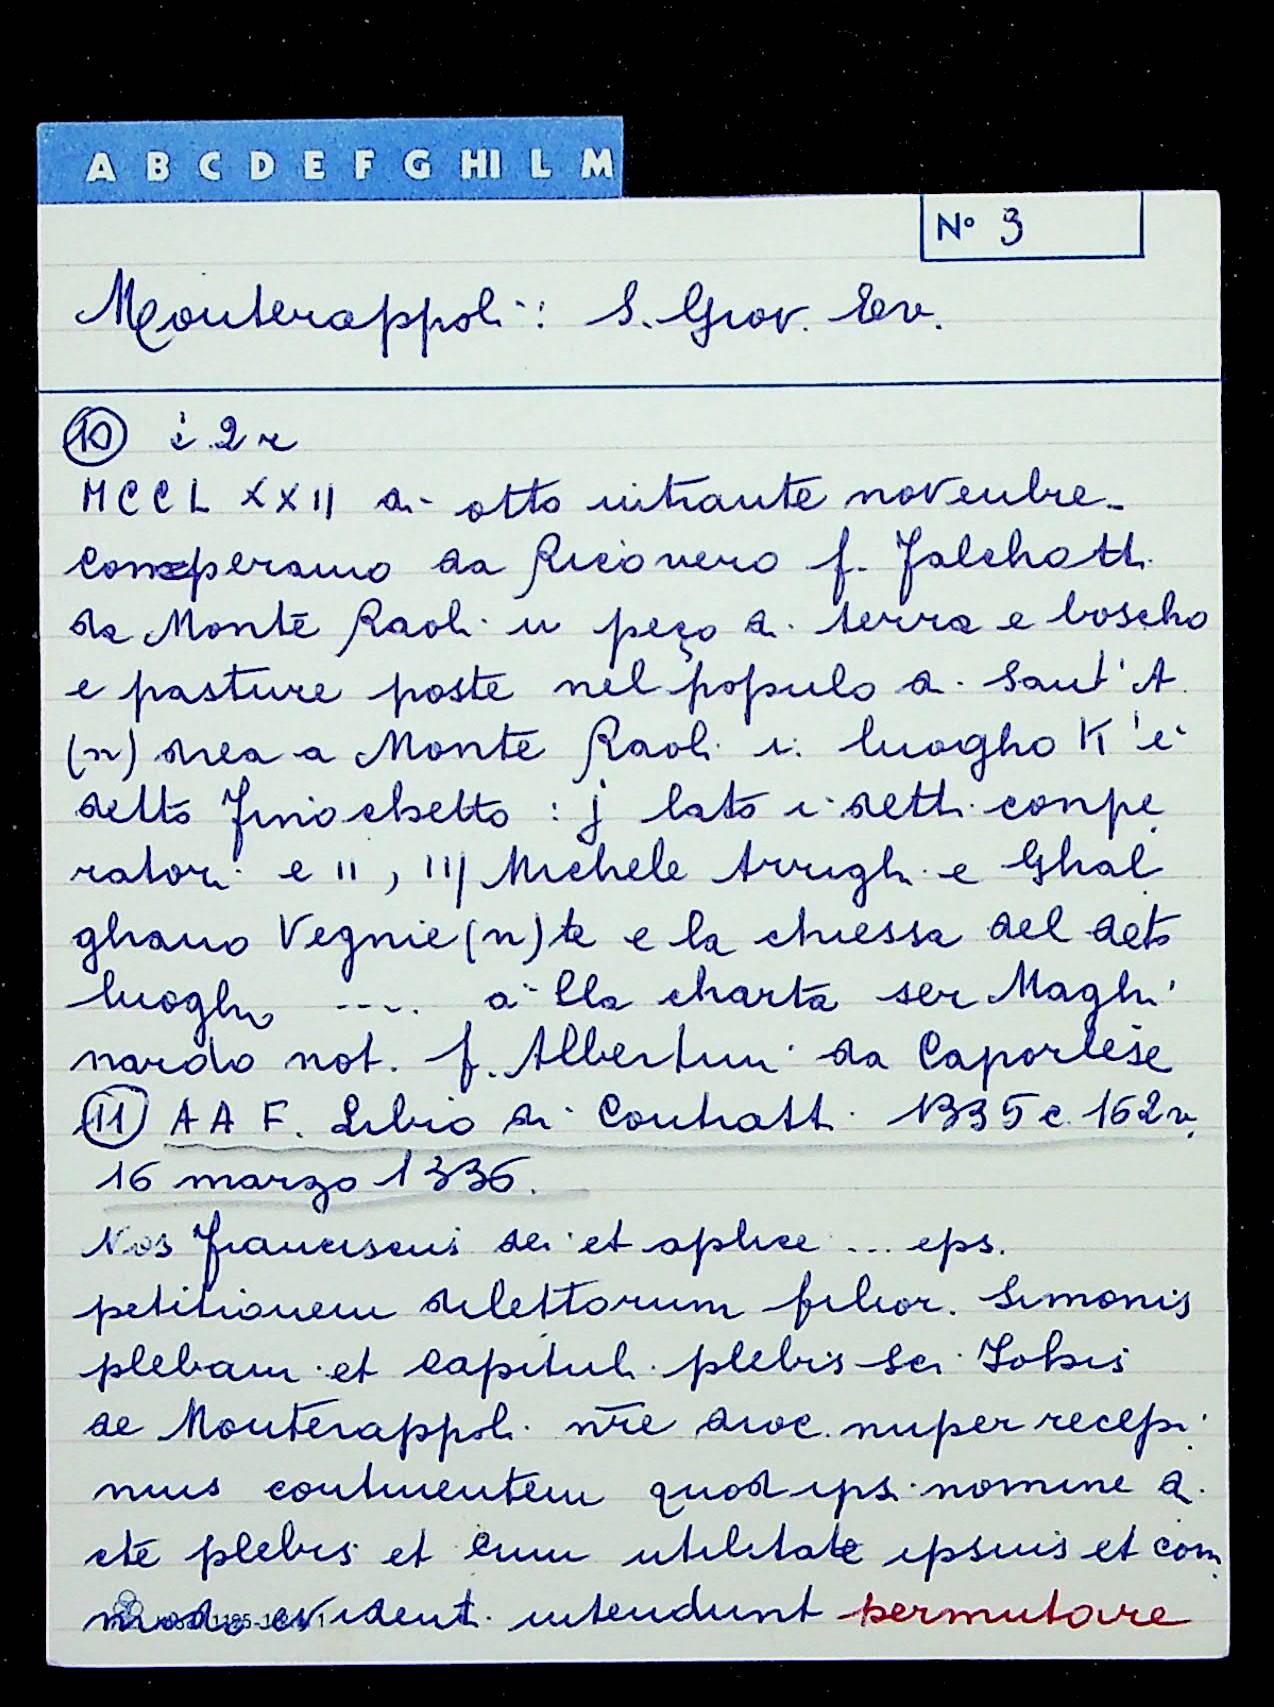 A B C D E F G HI L M
N° 3
Monterappoli: S. Giov. Ev.
10 i. 2 r
MCCLXXII di otto intrante novenbre.
Comperamo da Ricovero f. Falchotti
da Monte Raoli un peço di terra e boscho
e pasture poste nel populo di Sant' A
(n) drea a Monte Raoli i. luogho K'è
detto Finochietto : j lato i detti conpe
ratori e II, III Michele Arrighi e Ghal
ghano Vegnie(n)te e la chiessa del deto
luogho .... di lla charta ser Maghi
nardo not. f. Albertini da Caporlese
11 AAF. Libro di Contratti 1335 c. 162v.
16 marzo 1336.
Nos Franciscus dei et aplice ... eps.
petitionem dilettorum filior. Simonis
plebani et capituli plebis Sci Iohis
de Monterappoli nre dioc. nuper recepi
mus continentem quod ipsi nomine di
cte plebis et cum utilitate ipsius et com
modo evidenti intendunt permutare